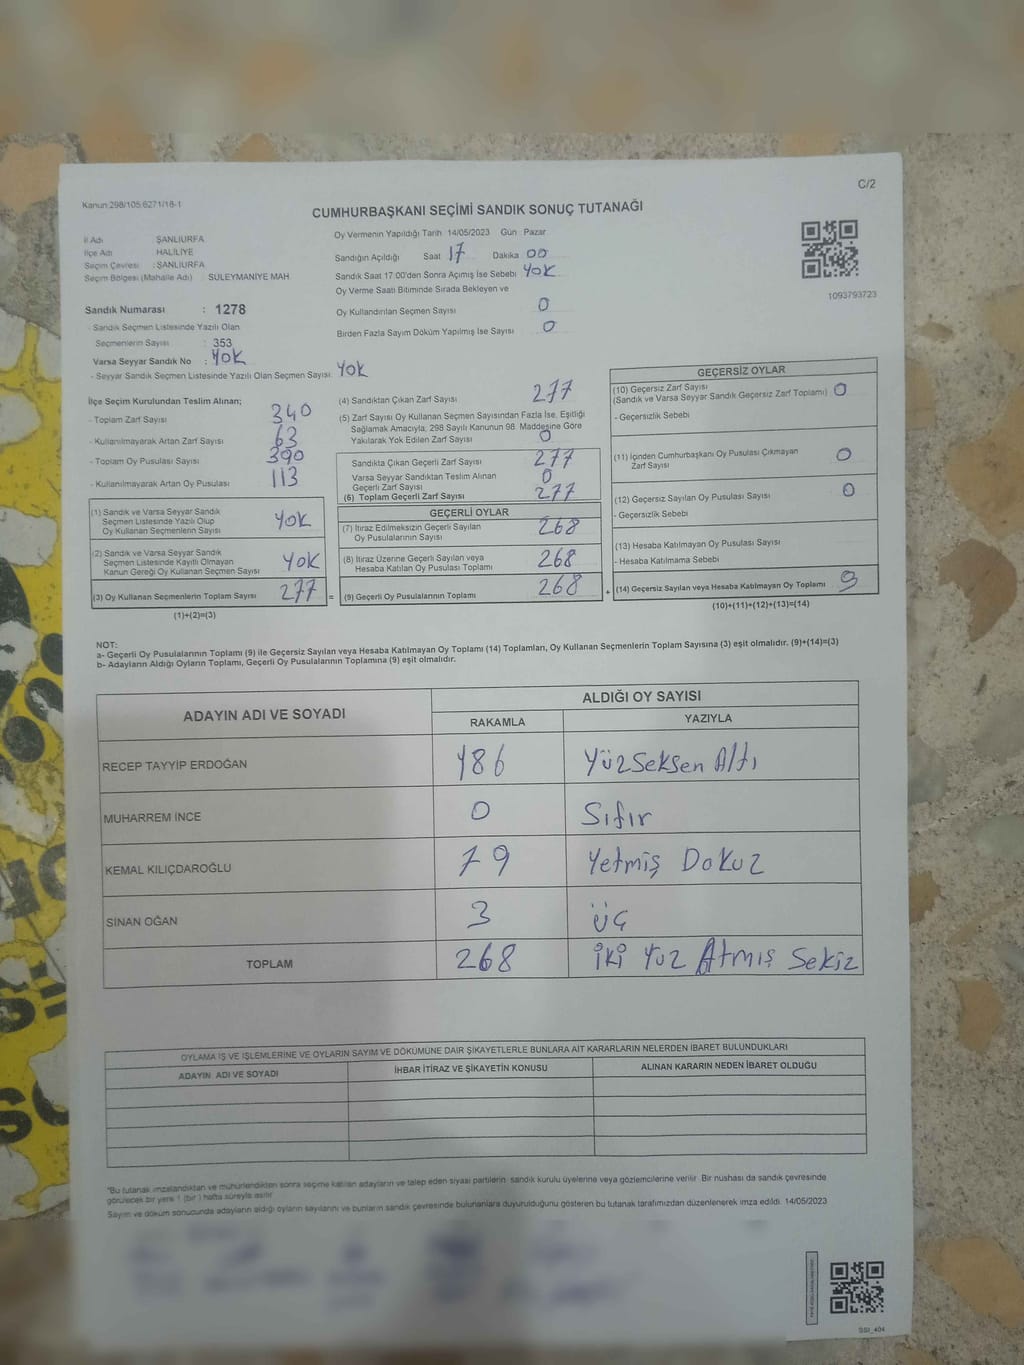 C/2
Kanun:298/105;6271/18-1
CUMHURBAŞKANI SEÇİMİ SANDIK SONUÇ TUTANAĞI
İl Adı : ŞANLIURFA
İlçe Adı : HALİLİYE
Seçim Çevresi : ŞANLIURFA
Seçim Bölgesi (Mahalle Adı) : SÜLEYMANİYE MAH.
Oy Vermenin Yapıldığı Tarih 14/05/2023 Gün Pazar
Sandığın Açıldığı Saat 17 Dakika 00
Sandık Saat 17.00'den Sonra Açımış İse Sebebi YOK
Oy Verme Saati Bitiminde Sırada Bekleyen ve
Oy Kullandırılan Seçmen Sayısı 0
Birden Fazla Sayım Döküm Yapılmış İse Sayısı 0
1093793723
Sandık Numarası : 1278
- Sandık Seçmen Listesinde Yazılı Olan
Seçmenlerin Sayısı : 353
Varsa Seyyar Sandık No : YOK
- Seyyar Sandık Seçmen Listesinde Yazılı Olan Seçmen Sayısı: YOK
İlçe Seçim Kurulundan Teslim Alınan;
- Toplam Zarf Sayısı 340
- Kullanılmayarak Artan Zarf Sayısı 63
- Toplam Oy Pusulası Sayısı 390
- Kullanılmayarak Artan Oy Pusulası 113
(1) Sandık ve Varsa Seyyar Sandık
Seçmen Listesinde Yazılı Olup
Oy Kullanan Seçmenlerin Sayısı YOK
(2) Sandık ve Varsa Seyyar Sandık
Seçmen Listesinde Kayıtlı Olmayan
Kanun Gereği Oy Kullanan Seçmen Sayısı YOK
(3) Oy Kullanan Seçmenlerin Toplam Sayısı 277 =
(1)+(2)=(3)
(4) Sandıktan Çıkan Zarf Sayısı 277
(5) Zarf Sayısı Oy Kullanan Seçmen Sayısından Fazla İse, Eşitliği
Sağlamak Amacıyla, 298 Sayılı Kanunun 98. Maddesine Göre
Yakılarak Yok Edilen Zarf Sayısı 0
Sandıkta Çıkan Geçerli Zarf Sayısı 277
Varsa Seyyar Sandıktan Teslim Alınan
Geçerli Zarf Sayısı 0
(6) Toplam Geçerli Zarf Sayısı 277
GEÇERLİ OYLAR
(7) İtiraz Edilmeksizin Geçerli Sayılan
Oy Pusulalarının Sayısı 268
(8) İtiraz Üzerine Geçerli Sayılan veya
Hesaba Katılan Oy Pusulası Toplamı 268
(9) Geçerli Oy Pusulalarının Toplamı 268 +
GEÇERSİZ OYLAR
(10) Geçersiz Zarf Sayısı
(Sandık ve Varsa Seyyar Sandık Geçersiz Zarf Toplamı) 0
- Geçersizlik Sebebi
(11) İçinden Cumhurbaşkanı Oy Pusulası Çıkmayan
Zarf Sayısı 0
(12) Geçersiz Sayılan Oy Pusulası Sayısı 0
- Geçersizlik Sebebi
(13) Hesaba Katılmayan Oy Pusulası Sayısı
- Hesaba Katılmama Sebebi
(14) Geçersiz Sayılan veya Hesaba Katılmayan Oy Toplamı 9
(10)+(11)+(12)+(13)=(14)
NOT:
a- Geçerli Oy Pusulalarının Toplamı (9) ile Geçersiz Sayılan veya Hesaba Katılmayan Oy Toplamı (14) Toplamları, Oy Kullanan Seçmenlerin Toplam Sayısına (3) eşit olmalıdır. (9)+(14)=(3)
b- Adayların Aldığı Oyların Toplamı, Geçerli Oy Pusulalarının Toplamına (9) eşit olmalıdır.
ADAYIN ADI VE SOYADI
ALDIĞI OY SAYISI
RAKAMLA YAZIYLA
RECEP TAYYİP ERDOĞAN 186 Yüzseksen Altı
MUHARREM İNCE 0 Sıfır
KEMAL KILIÇDAROĞLU 79 Yetmiş Dokuz
SİNAN OĞAN 3 üç
TOPLAM 268 iki Yüz Atmış Sekiz
OYLAMA İŞ VE İŞLEMLERİNE VE OYLARIN SAYIM VE DÖKÜMÜNE DAİR ŞİKAYETLERLE BUNLARA AİT KARARLARIN NELERDEN İBARET BULUNDUKLARI
ADAYIN ADI VE SOYADI İHBAR İTİRAZ VE ŞİKAYETİN KONUSU ALINAN KARARIN NEDEN İBARET OLDUĞU
*Bu tutanak imzalandıktan ve mühürlendikten sonra seçime katılan adayların ve talep eden siyasi partilerin sandık kurulu üyelerine veya gözlemcilerine verilir. Bir nüshası da sandık çevresinde
görülecek bir yere 1 (bir) hafta süreyle asılır.
Sayım ve döküm sonucunda adayların aldığı oyların sayılarını ve bunların sandık çevresinde bulunanlara duyurulduğunu gösteren bu tutanak tarafımızdan düzenlenerek imza edildi. 14/05/2023
SSI_404